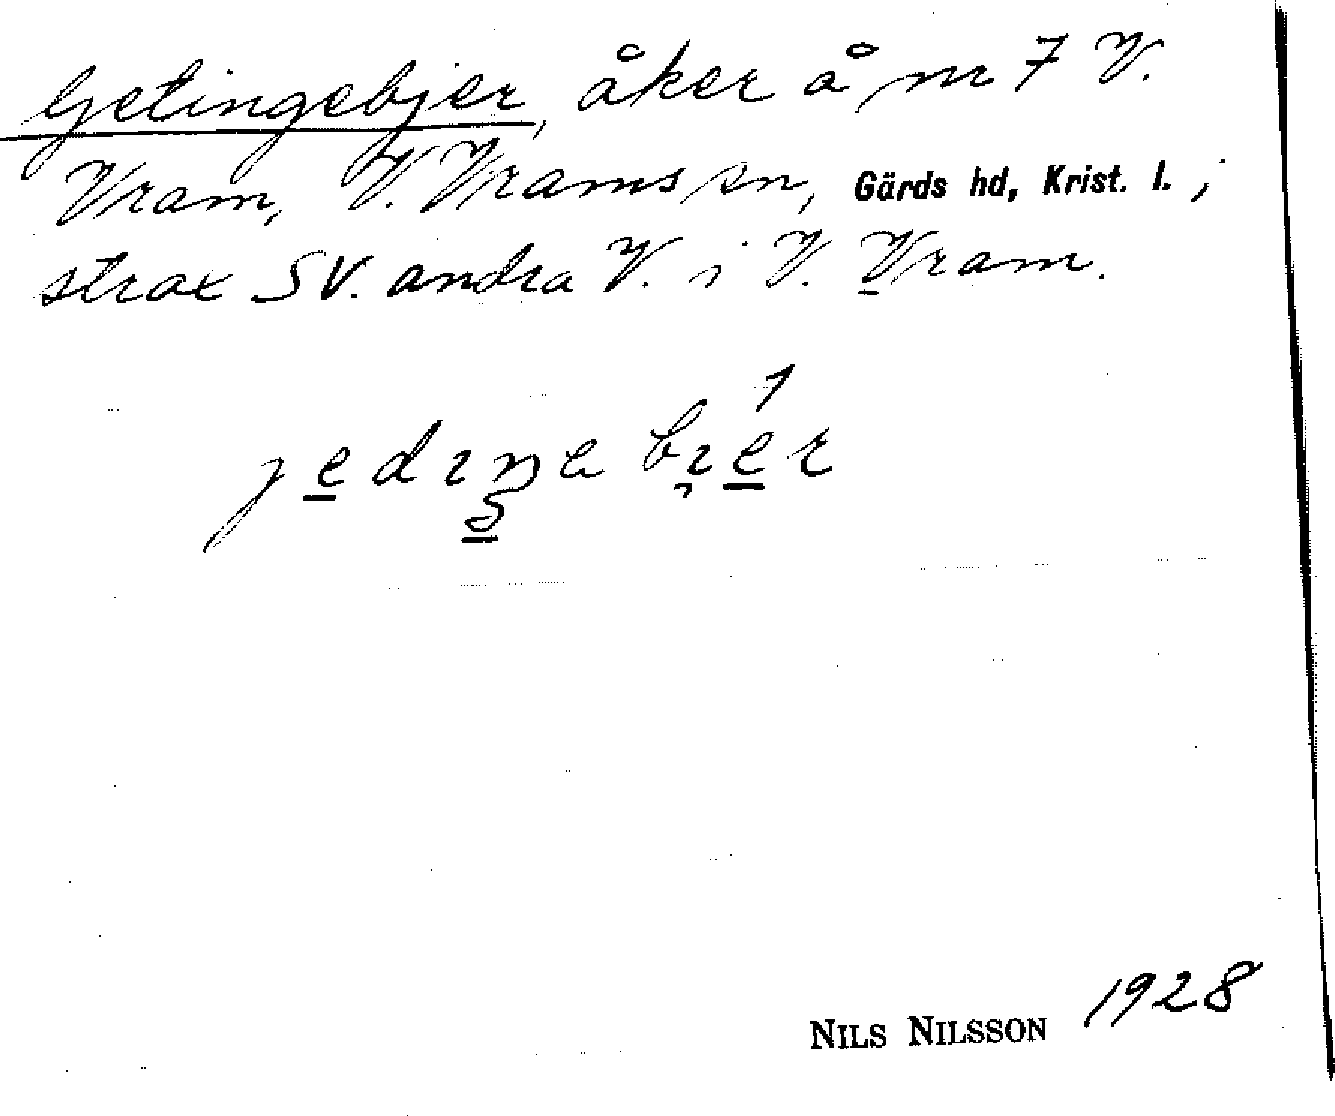 Getingebjer, åker å nr 7 V.
Vram, V. Vrams sn, Gärds hd, Krist. l.,
strax SV. andra V. i V. Vram.
NILS NILSSON 1928